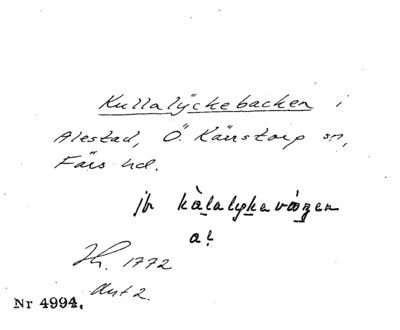 Kullalyckebacken i
Alestad, Ö. Kärrstorp sn,
Färs hd.
jfr kàlalykavägen
a!
Jh. 1772
Akt 2.
Nr 4994.